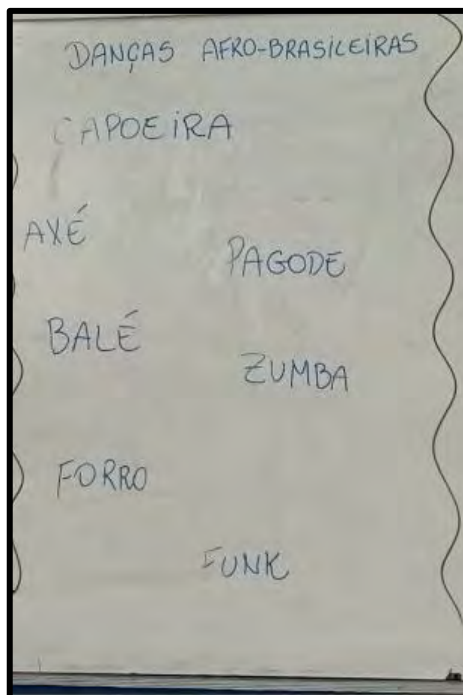 DANÇAS AFRO-BRASILEIRAS
CAPOEIRA
AXÉ
PAGODE
BALÉ
ZUMBA
FORRO
FUNK